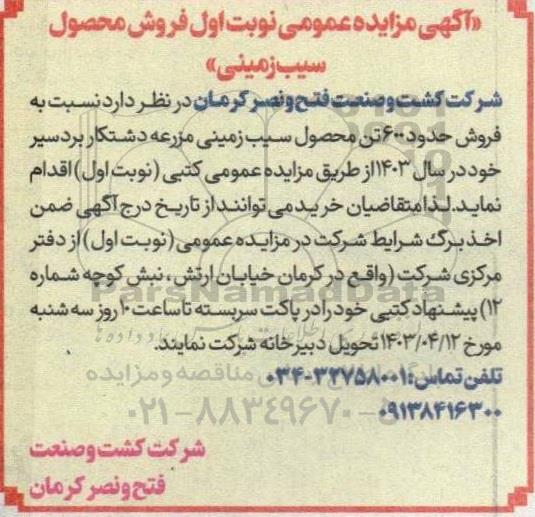 «آگهی مزایده عمومی نوبت اول فروش محصول
سیب زمینی»
شرکت کشت و صنعت فتح و نصر کرمان در نظر دارد نسبت به
فروش حدود ۶۰۰ تن محصول سیب زمینی مزرعه دشتکار بردسیر
خود در سال ۱۴۰۳ از طریق مزایده عمومی کتبی (نوبت اول) اقدام
نماید. لذا متقاضیان خرید می توانند از تاریخ درج آگهی ضمن
اخذ برگ شرایط شرکت در مزایده عمومی (نوبت اول) از دفتر
مرکزی شرکت (واقع در کرمان خیابان ارتش، نبش کوچه شماره
۱۲) پیشنهاد کتبی خود را در پاکت سربسته تا ساعت ۱۰ روز سه شنبه
مورخ ۱۴۰۳/۰۴/۱۲ تحویل دبیرخانه شرکت نمایند.
تلفن تماس: ۳۲۷۵۸۰۰۱-۰۳۴
۰۹۱۳۸۴۱۶۳۰۰
شرکت کشت و صنعت
فتح و نصر کرمان
ParsNamadData
۰۲۱-۸۸۳۴۹۶۷۰-۵